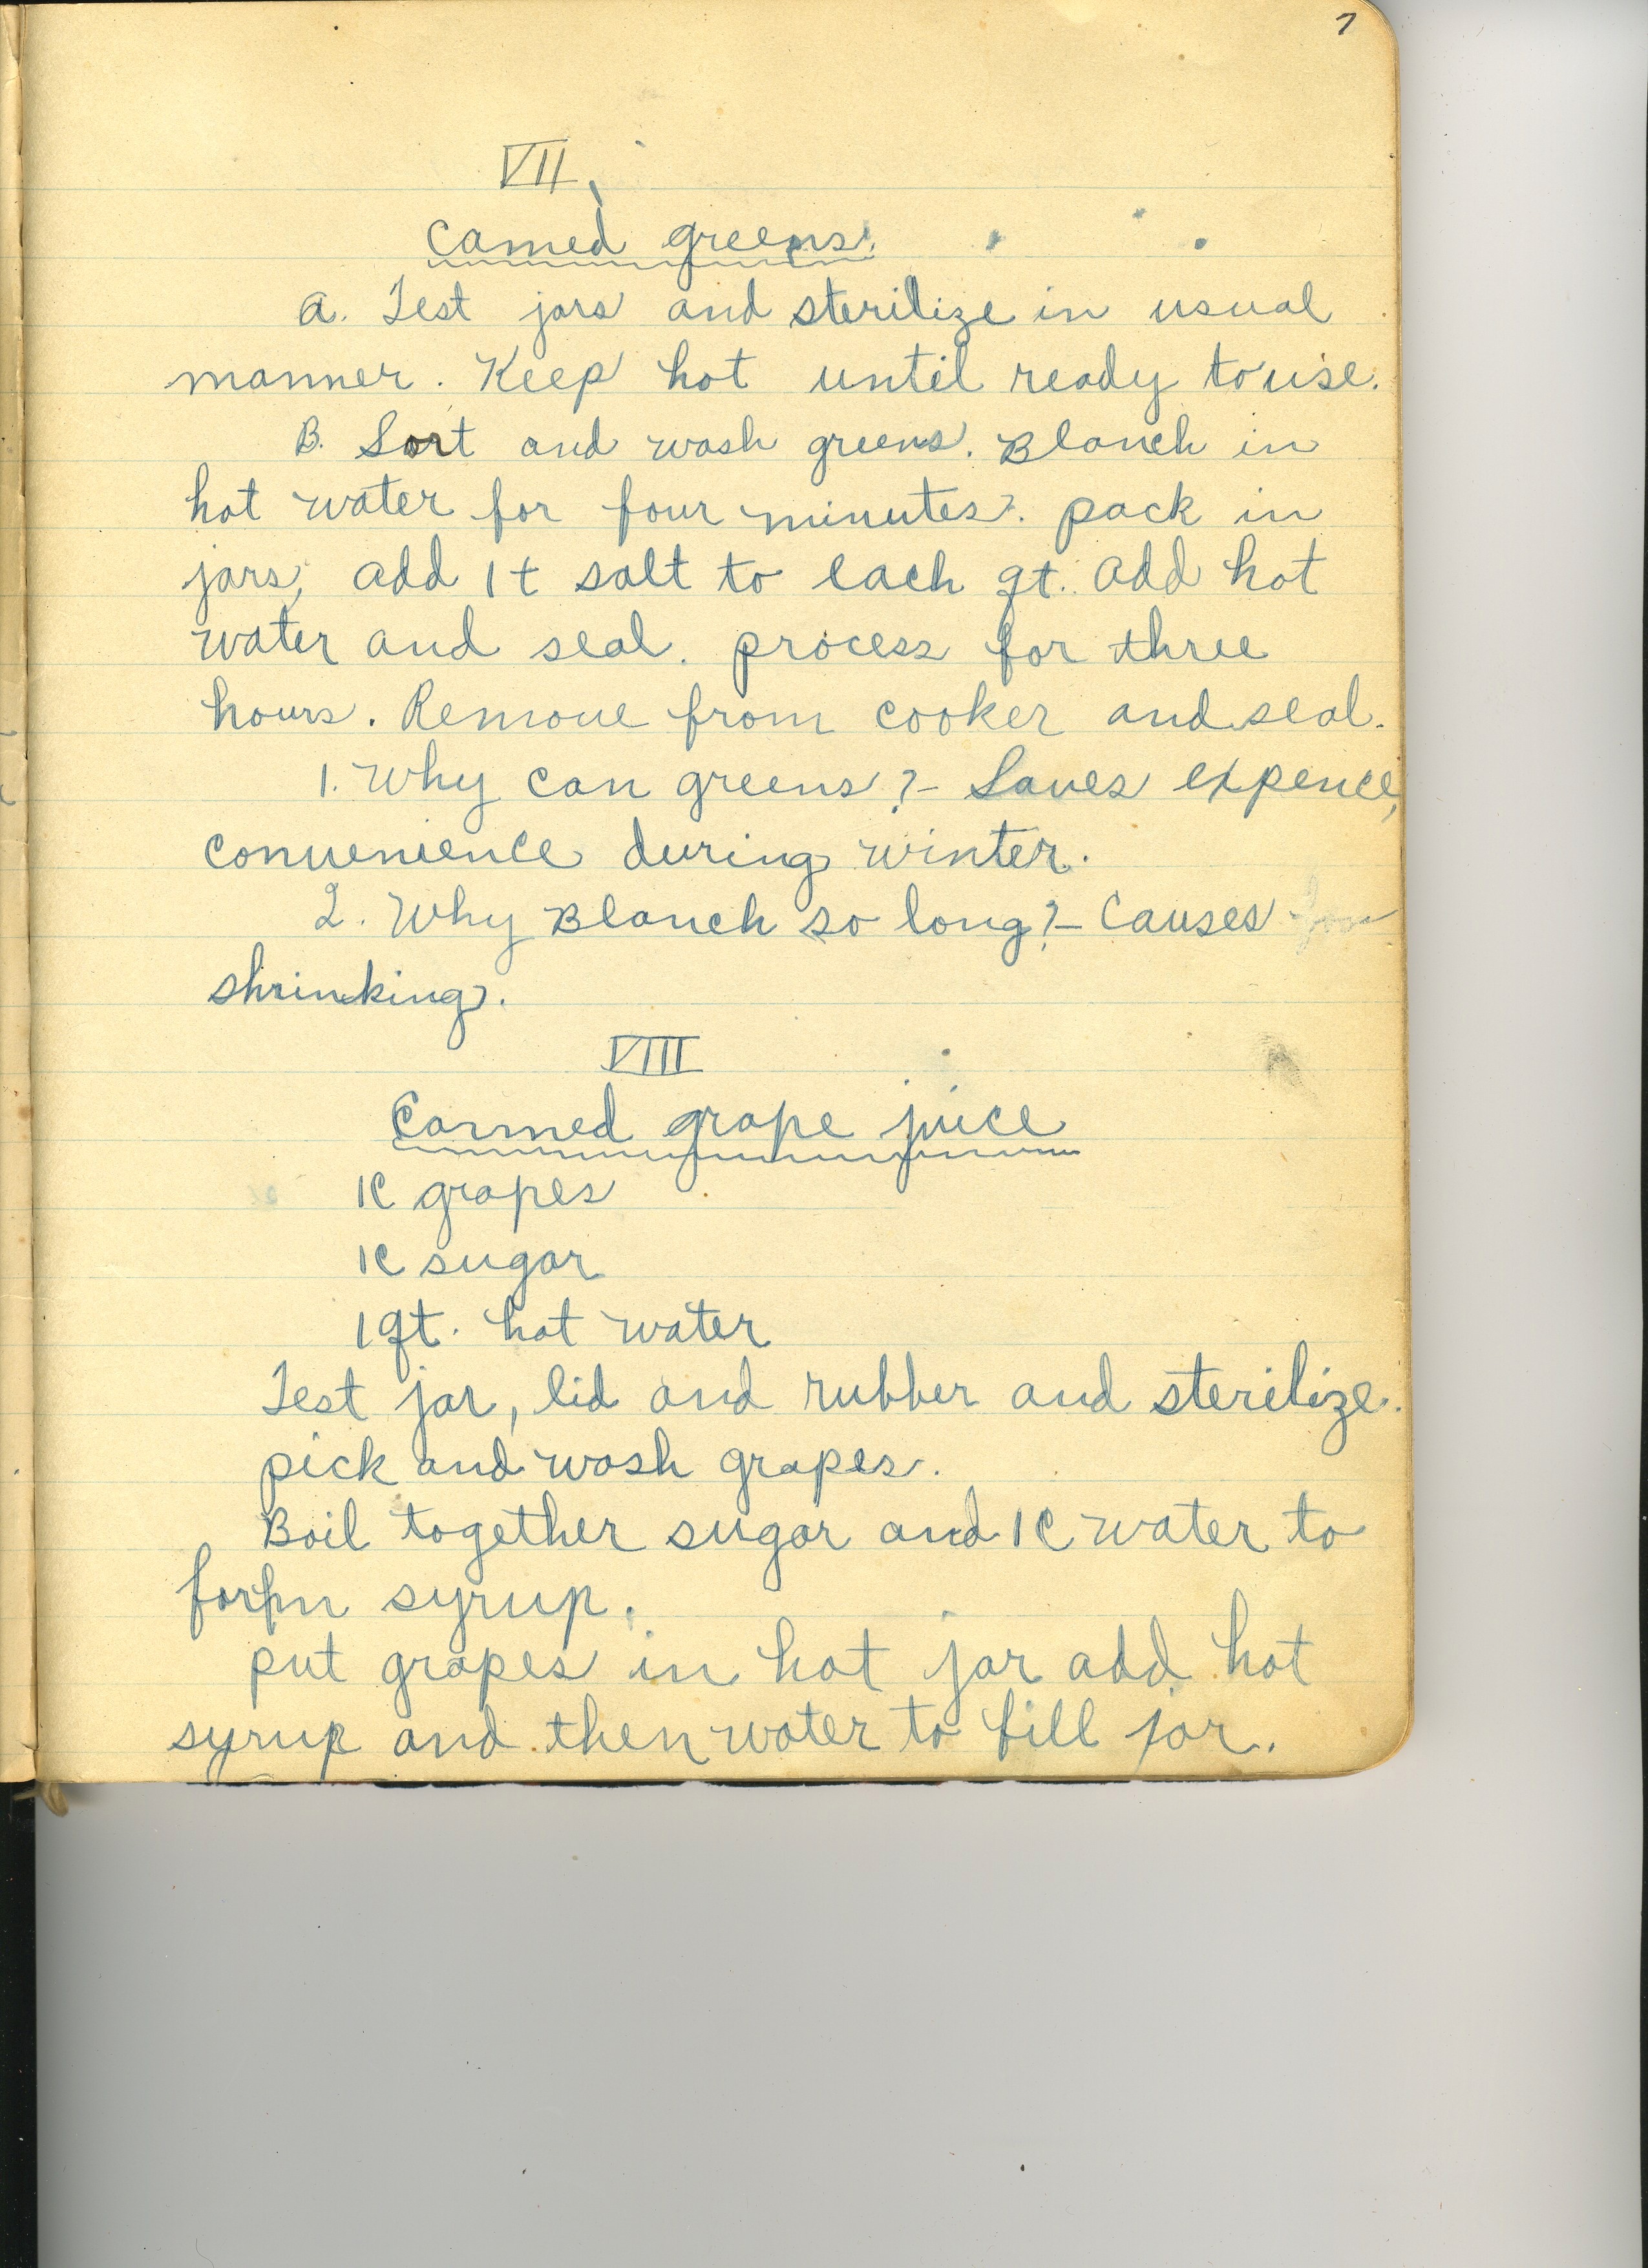 7
VII.
Canned greens.
A. Test jars and sterilize in usual
manner. Keep hot until ready to use.
B. Sort and wash greens. Blanch in
hot water for four minutes. pack in
jars, add 1 t salt to each qt. add hot
water and seal. process for three
hours. Remove from cooker and seal.
1. Why can greens? - Saves expence,
convenience during winter.
2. Why Blanch so long? - Causes
shrinking.
VIII
Canned grape juice
1C grapes
1C sugar
1 qt. hot water
Test jar, lid and rubber and sterilize.
pick and wash grapes.
Boil together sugar and 1C water to
form syrup.
put grapes in hot jar add hot
syrup and then water to fill jar.